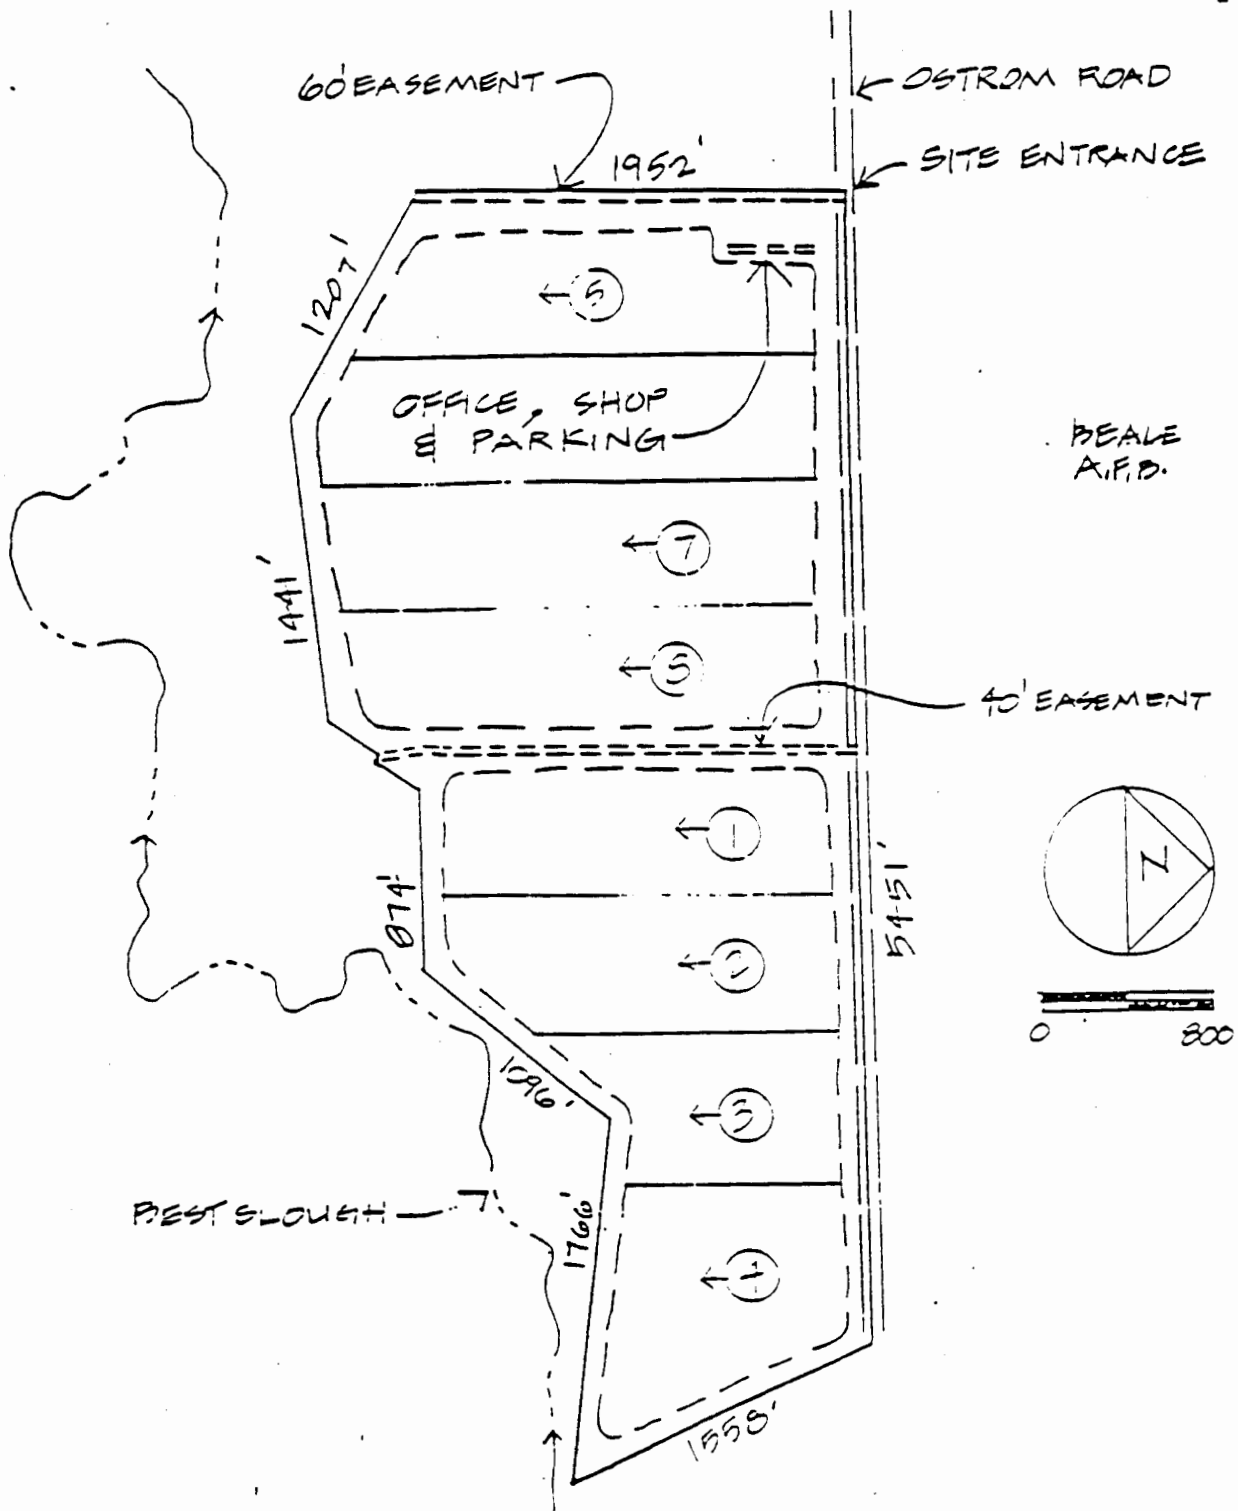 60' EASEMENT
OSTROM ROAD
SITE ENTRANCE
1952'
1207'
5
OFFICE, SHOP
& PARKING
BEALE
A.F.B.
7
1441'
8
40' EASEMENT
1
874'
5451'
Z
2
0 800
1096'
3
BEST SLOUGH
1766'
4
1558'